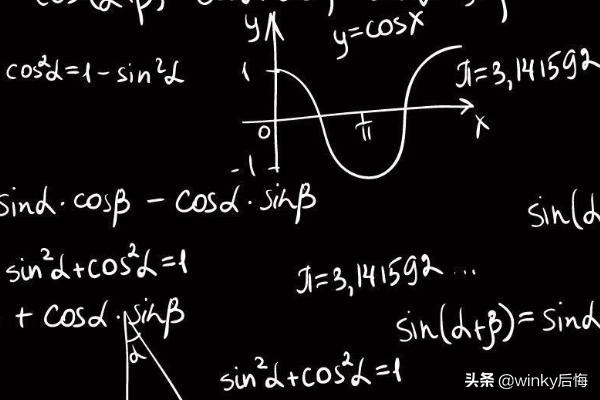 y
y=cosx
cos²α=1-sin²α
1
π=3,141592
0
π
x
-1
sinα·cosβ - cosα·sinβ
sin(α
sin²α+cos²α=1
π=3,141592...
+ cosα·sinβ
sin(α+β)=sinα
α
sin²α+cos²α=1
头条 @winky后悔